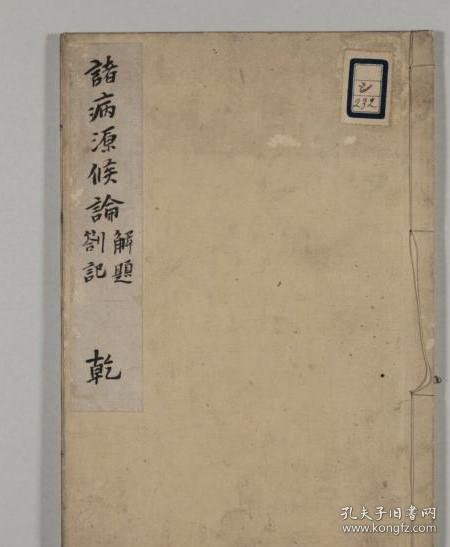 諸病源候論
解題
劄記
乾
232
孔夫子旧书网
www.kongfz.com